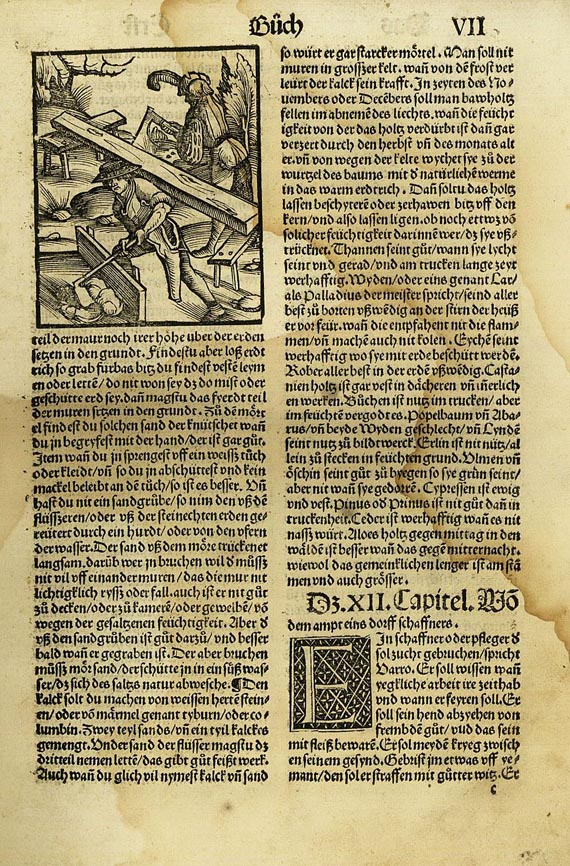 Bůch VII
teil der maur noch irer höhe uber der erden
setzen in den grundt. Findestu aber loß erdt
rich so grab fürbas bitz du findest veste leym
en oder lettē/ do nit won sey dz do mist oder
geschütte erd sey. dañ magstu das fyerdt teil
der muren setzen in den grundt. Zů dē mört
el findest du solchen sand der knütschet wañ
du jn begryfest mit der hand/der ist gar gůt.
Item wañ du jn sprengest vff ein weissz tüch
oder kleidt/vñ so du jn abschüttest vnd kein
mackel beleibt an dē tüch/so ist es besser. Vñ
hast du nit ein sandgrůbe/so nim den vß dē
flüsszeren/oder vß der steinechten erden ge⸗
reütert durch ein hurdt/ oder von den vfern
der wasser. Der sand vß dem möre trücknet
langsam. darüb wer jn bruchen wil d müssz
nit vil vff einander muren/ das die mur nit
lichtigklich ryssz oder fall. auch ist er nit gůt
zů decken/oder zů kamerē/oder gewelbē/ vō
wegen der gesaltzenen feüchtigkeit. Aber d
vß den sandgrüben ist gůt darzů/ vnd besser
bald wañ er gegraben ist. Der aber bruchen
müssz mör sand/der schütte jn in ein süß was⸗
ser/dz sich des saltzs natur abwesche. ¶Den
kalck solt du machen von weissen hertē stein⸗
en/oder vō märmel genant tyburn/oder co⸗
lumbin. Zwey teyl sands/vñ ein tyil kalck es
gemengt. Vnder sand der flüsser magstu dz
dritteil nemen lettē/das gibt gůt feißt werk.
Auch wañ du glich vil nymest kalck vñ sand
so würt er gar starcker mörtel. Man soll nit
muren in grosszer kelt. wañ von dē frost ver
leürt der kalck sein krafft. In zeyten des No⸗
uembers oder Decēbers soll man bawholtz
fellen im abnemē des liechts. wañ die feücht
igkeit von der das holtz verdürbt ist dañ gar
verzert durch den herbst vñ des monats alt
er. vñ von wegen der kelte wychet sye zů der
wurtzel des baums mit d natürlichē werme
in das warm erdtrich. Dañ soltu das holtz
lassen beschyterē oder zerhawen bitz vff den
kern/vnd also lassen ligen. ob noch ettwz vō
solicher feüchtigkeit darinnē wer/ dz sye vß⸗
trückner. Thannen seint gůt/wann sye lycht
seint vnd gerad/vnd am trucken lange zeyt
werhafftig. Wyden/oder eins genant Lar/
als Palladius der meister spricht/seind aller
best zů borten vßwēdig an der stirn der heüß
er vor feür. wañ die entpfahent nit die flam⸗
men/vñ machē auch nit kolen. Eychē seint
werhafftig wo sye mit erde beschütt werdē.
Rober aller best in der erdē vßwēdig. Casta⸗
nien holtz ist gar vest in dächeren vñ iñerlich
en wercken. Bůchen ist nutz im trucken/ aber
im feüchtē vergodt es. Popelbaum vñ Aba⸗
rus/vñ beyde Wyden geschlecht/ vñ Lyndē
seint nutz zů bildtwerck. Erlin ist nit nütz/al
lein zů stecken in feüchtē grund. Vlmen vñ
öschin seint gůt zů byegen so sye grün seint/
aber nit wañ sye gedorrē. Cypressen ist ewig
vnd vest. Pinus od Prinus ist nit gůt dañ in
truckenheit. Ceder ist werhafftig wañ es nit
nassz würt. Aloes holtz gegen mittag in den
wäldē ist besser wañ das gegē mitternacht.
wiewol das gemeinklichen lenger ist am stā
men vnd auch grösser.
Dz. XII. Capitel. Vō
dem ampt eins dorff schaffners.
EIn schaffner oder pfleger d
sol zucht gebruchen/spricht
Varro. Er soll wissen wañ
yegkliche arbeit ire zeit hab
vnd wann er feyren soll. Er
soll sein hend abzyehen von
frembdē gůt/ vnd das sein
mit fleiß bewarē. Er sol meydē kryeg zwisch
en seinem gesynd. Gebrist jm etwas vff ye⸗
mant/den sol er straffen mit gůtter witz. Er
c